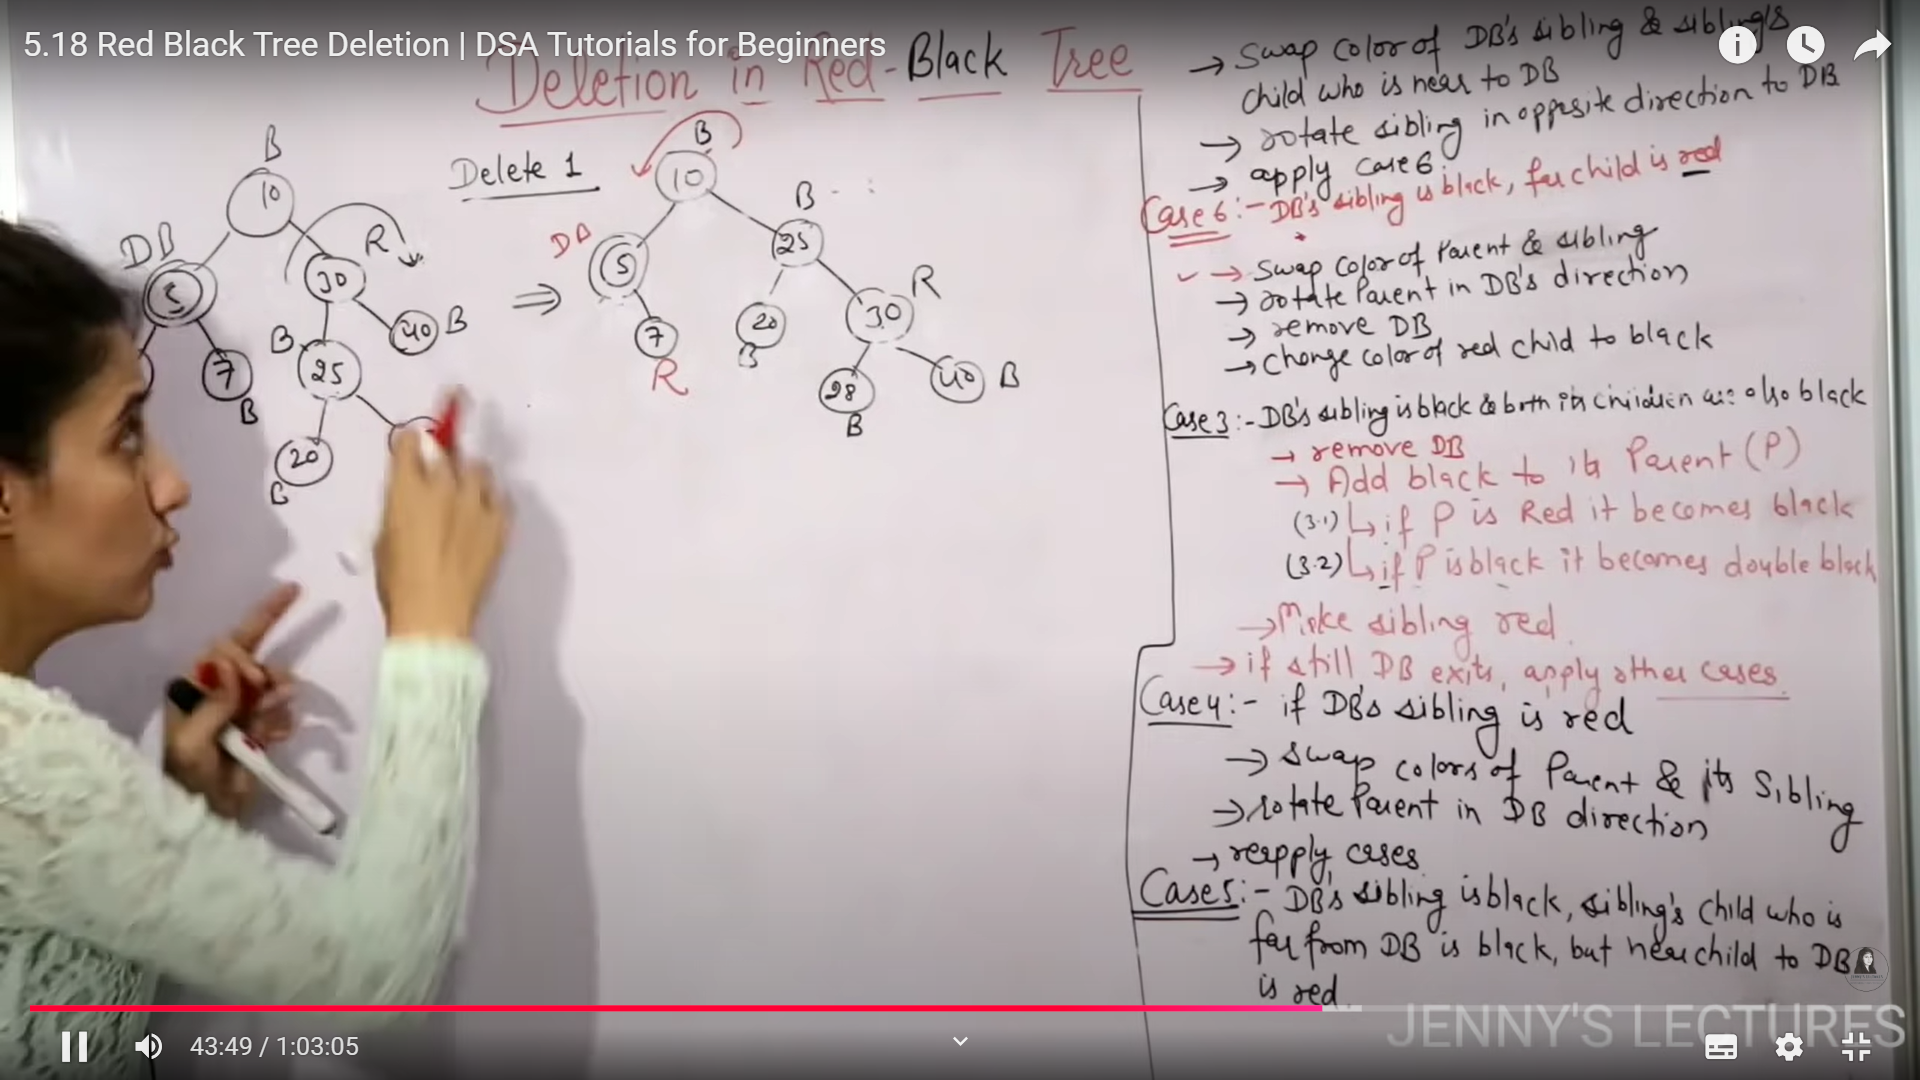 5.18 Red Black Tree Deletion | DSA Tutorials for Beginners
Deletion in Red-Black Tree
Delete 1
B
10
DB
5
R
30
7
B
B
25
40 B
20
B
⇒
B
10
DB
5
7
R
B
25
20
B
R
30
28
B
40 B
→ swap color of DB's sibling & sibling's
child who is near to DB
→ rotate sibling in opposite direction to DB
→ apply case 6
Case 6:- DB's sibling is black, far child is red
→ swap color of Parent & sibling
→ rotate Parent in DB's direction
→ remove DB
→ change color of red child to black
Case 3:- DB's sibling is black & both its children are also black
→ remove DB
→ Add black to its Parent (P)
(3.1) ↳ if P is Red it becomes black
(3.2) ↳ if P is black it becomes double black
→ Make sibling red.
→ if still DB exits, apply other cases.
Case 4:- if DB's sibling is red
→ swap colors of Parent & its Sibling
→ rotate Parent in DB direction
→ reapply cases
Case 5:- DB's sibling is black, sibling's child who is
far from DB is black, but near child to DB
is red.
JENNY'S LECTURES
43:49 / 1:03:05